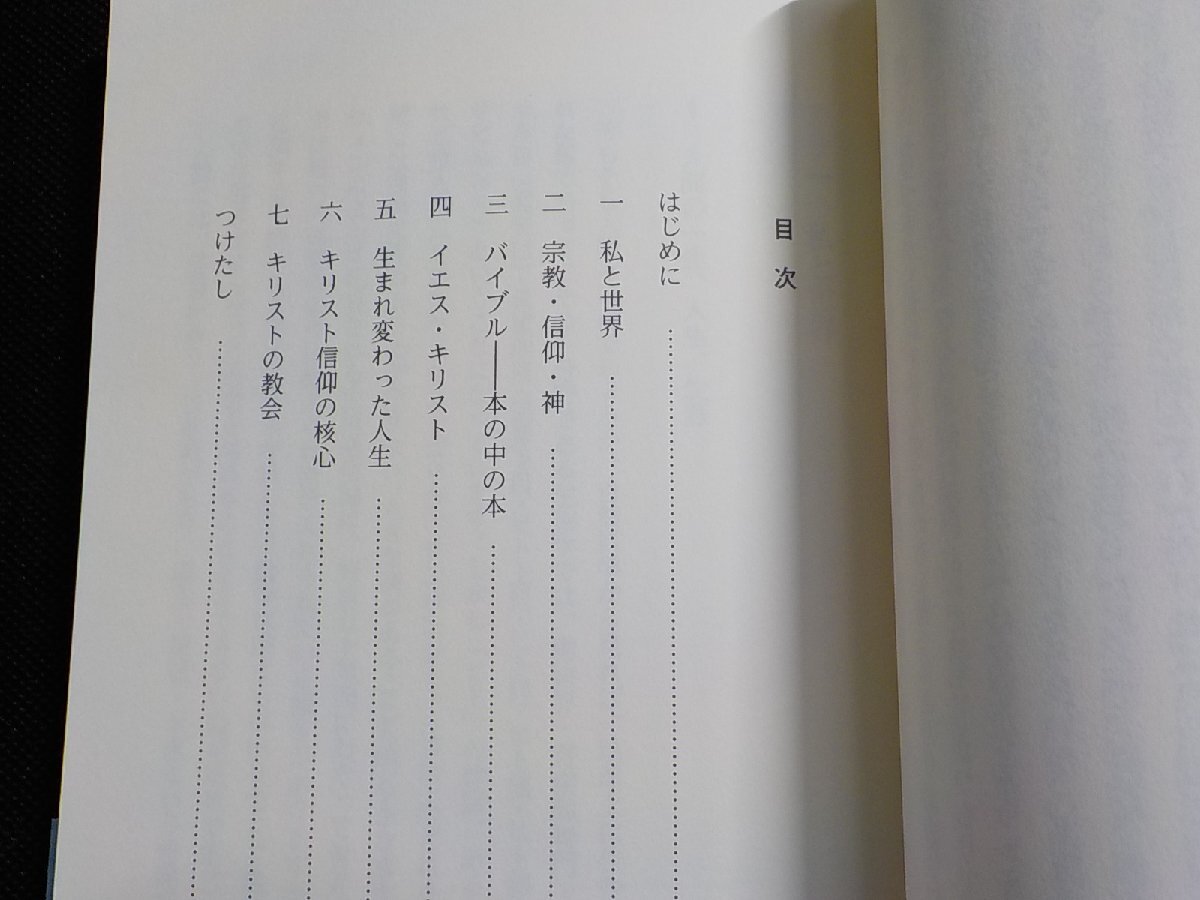 目次
はじめに
一 私と世界
二 宗教・信仰・神
三 バイブル──本の中の本
四 イエス・キリスト
五 生まれ変わった人生
六 キリスト信仰の核心
七 キリストの教会
つけたし